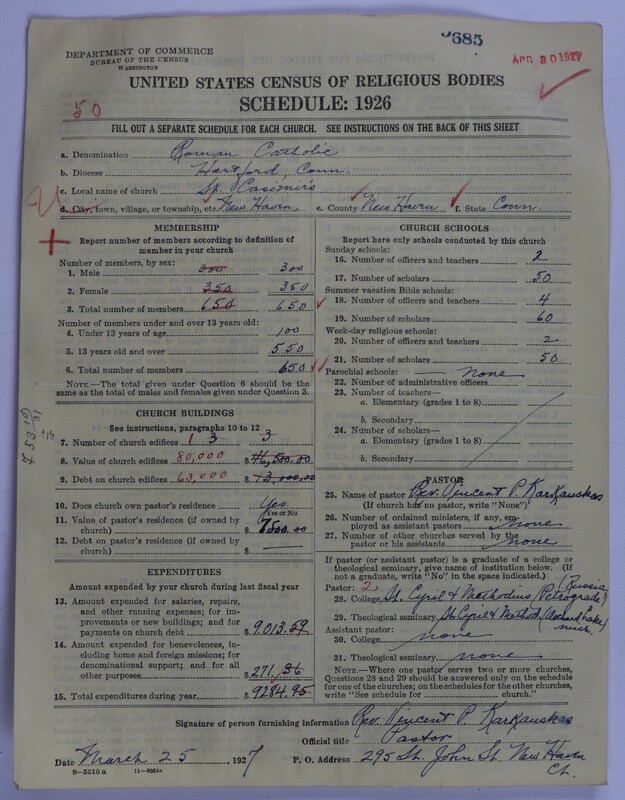 3685
APR 30 1927
DEPARTMENT OF COMMERCE
BUREAU OF THE CENSUS
WASHINGTON
UNITED STATES CENSUS OF RELIGIOUS BODIES
SCHEDULE: 1926
50
FILL OUT A SEPARATE SCHEDULE FOR EACH CHURCH. SEE INSTRUCTIONS ON THE BACK OF THIS SHEET
a. Denomination Roman Catholic
b. Diocese Hartford, Conn.
c. Local name of church St. Casimir's
d. City, town, village, or township, etc. New Haven e. County New Haven f. State Conn.
MEMBERSHIP
Report number of members according to definition of
member in your church
Number of members, by sex:
1. Male 300 300
2. Female 350 350
3. Total number of members 650 650
Number of members under and over 13 years old:
4. Under 13 years of age 100
5. 13 years old and over 550
6. Total number of members 650
NOTE.—The total given under Question 6 should be
same as the total of males and females given under Question 3.
CHURCH BUILDINGS
See instructions, paragraphs 10 to 12
7. Number of church edifices 1 3 3
8. Value of church edifices 80,000 $
9. Debt on church edifices 63,000 $ 13,000.00
10. Does church own pastor's residence Yes
Yes or No
11. Value of pastor's residence (if owned by
church) $ 7500.00
12. Debt on pastor's residence (if owned by
church) $ —
EXPENDITURES
Amount expended by your church during last fiscal year
13. Amount expended for salaries, repairs,
and other running expenses; for im-
provements or new buildings; and for
payments on church debt $ 9,013.59
14. Amount expended for benevolences, in-
cluding home and foreign missions; for
denominational support; and for all
other purposes $ 271.36
15. Total expenditures during year $ 9284.95
CHURCH SCHOOLS
Report here only schools conducted by this church
Sunday schools:
16. Number of officers and teachers 2
17. Number of scholars 50
Summer vacation Bible schools:
18. Number of officers and teachers 4
19. Number of scholars 60
Week-day religious schools:
20. Number of officers and teachers 2
21. Number of scholars 50
Parochial schools: — None
22. Number of administrative officers
23. Number of teachers—
a. Elementary (grades 1 to 8)
b. Secondary
24. Number of scholars—
a. Elementary (grades 1 to 8)
b. Secondary
PASTOR
25. Name of pastor Rev. Vincent P. Karkauskas
(If church has no pastor, write "None")
26. Number of ordained ministers, if any, em-
ployed as assistant pastors none
27. Number of other churches served by the
pastor or his assistants none
If pastor (or assistant pastor) is a graduate of a college or
theological seminary, give name of institution below. (If
not a graduate, write "No" in the space indicated.)
Pastor: 2 (Russia
28. College St. Cyril & Methodius (Petrograde)
29. Theological seminary St. Cyril & Method. (Orchard Lake,
Mich)
Assistant pastor:
30. College none
31. Theological seminary none
NOTE.—Where one pastor serves two or more churches,
Questions 28 and 29 should be answered only on the schedule
for one of the churches; on the schedules for the other churches,
write "See schedule for church."
Signature of person furnishing information Rev. Vincent P. Karkauskas
Official title Pastor
Date March 25, 1927 P. O. Address 295 St. John St. New Haven
Ct.
8-5818a 11-9054a